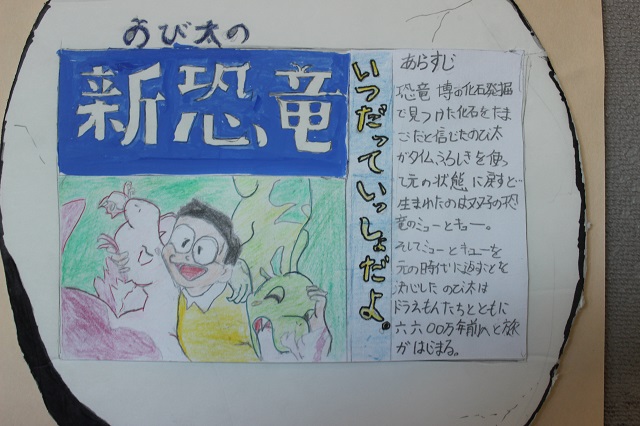 のび太の
新恐竜
いつだっていっしょだよ。
あらすじ
恐竜 博の化石発掘
で見つけた化石をたま
ごだと信じたのび太
がタイムふろしきを使っ
て元の状態に戻すと
生まれたのは双子の恐
竜のミューとキュー。
そしてミューとキューを
元の時代に返すことを
決心したのび太は
ドラえもんたちとともに
六六〇〇万年前へと旅
がはじまる。